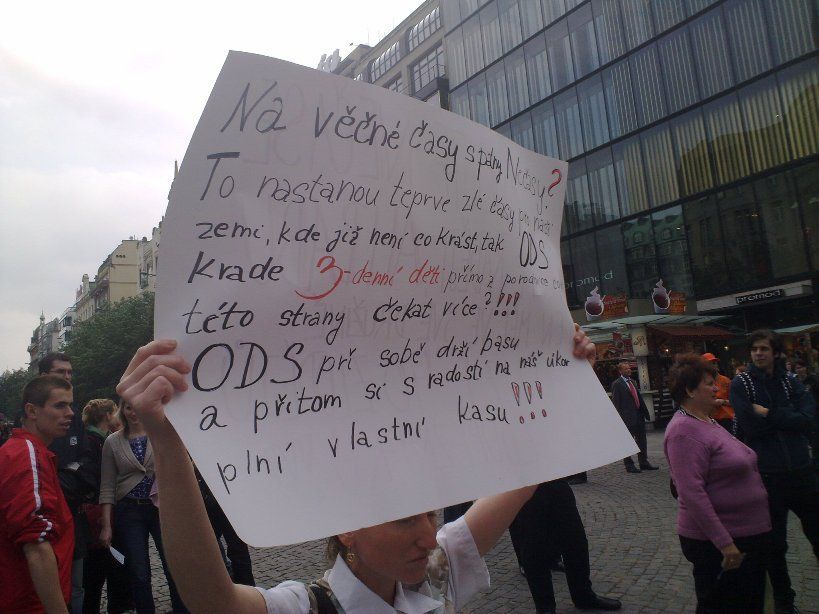 Na věčné časy s pány Nečasy?
To nastanou teprve zlé časy pro naši
zemi, kde již není co krást, tak ODS
krade 3-denní děti přímo z porodnice
této strany čekat více?!!!
ODS při sobě drží basu
a přitom si s radostí na náš úkor
plní vlastní kasu!!!
promod
promod